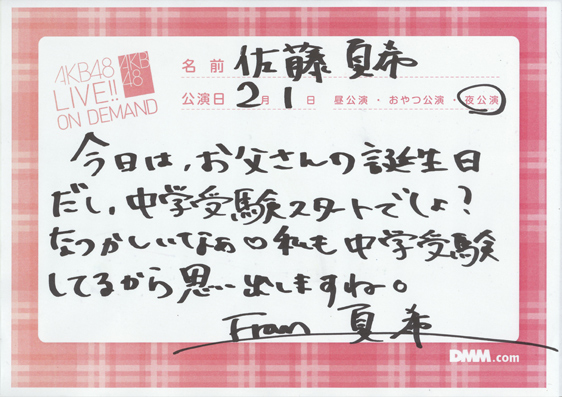 AKB48
LIVE!!
ON DEMAND
AKB
48
名前 佐藤夏希
公演日 2月1日 昼公演・おやつ公演・夜公演
今日は、お父さんの誕生日
だし、中学受験スタートでしょ?
なつかしいなぁ♡私も中学受験
してるから思い出しますね。
From 夏希
DMM.com